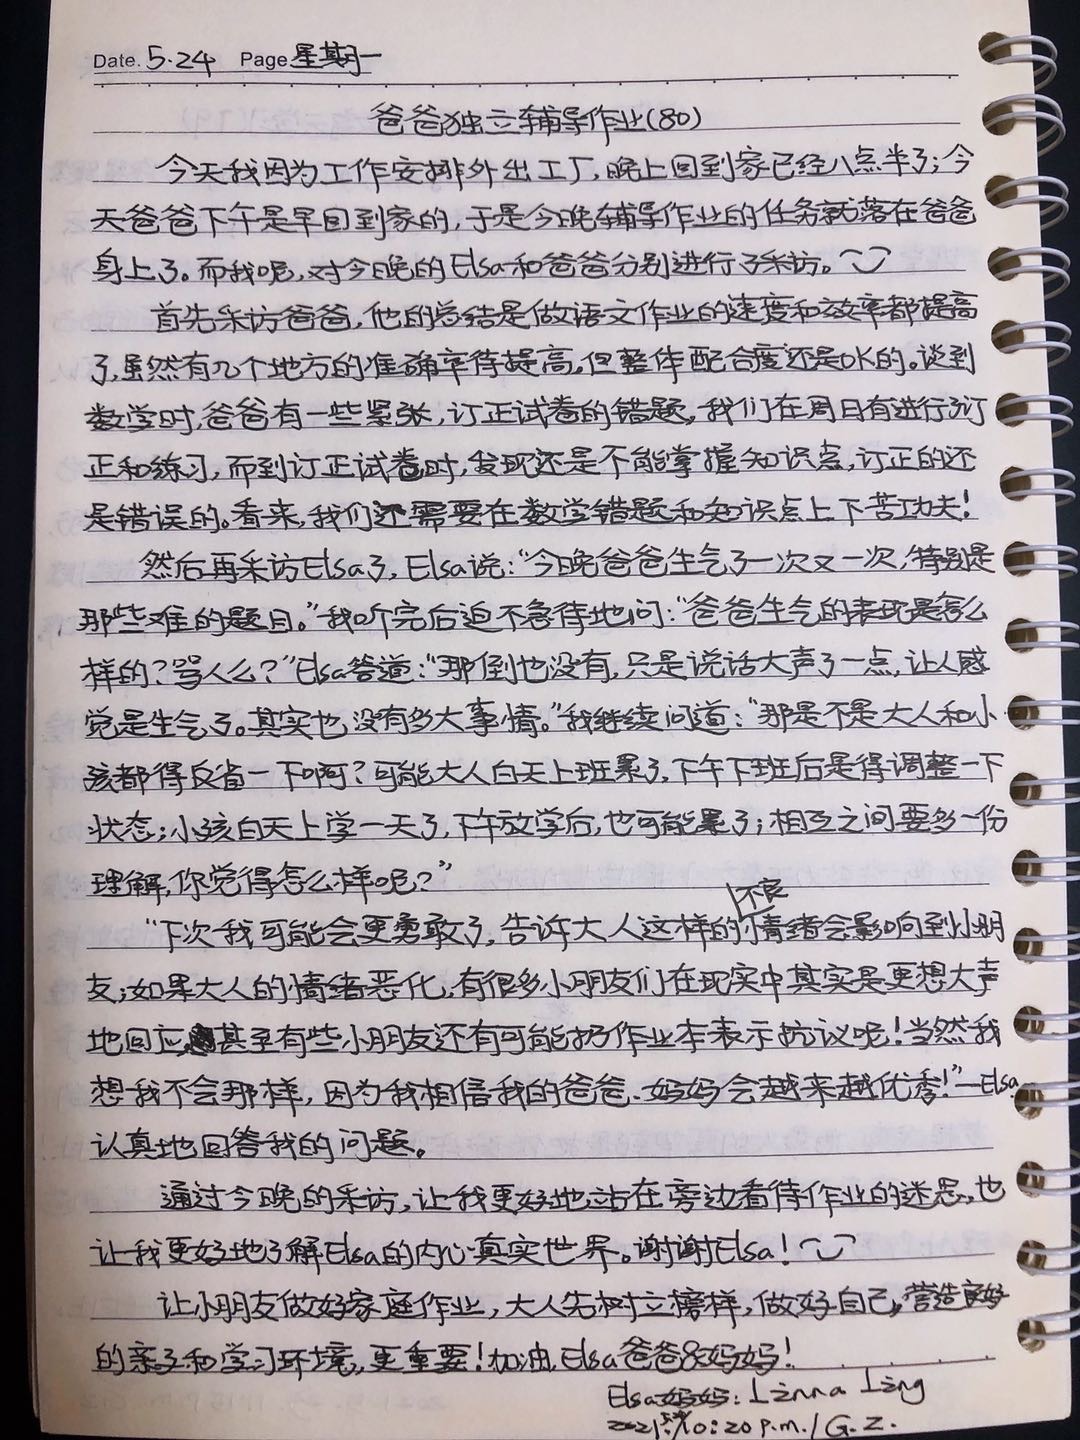 Date. 5·24 Page 星期一
爸爸独立辅导作业(80)
今天我因为工作安排外出工厂,晚上回到家已经八点半了;今
天爸爸下午是早回到家的,于是今晚辅导作业的任务就落在爸爸
身上了。而我呢,对今晚的Elsa和爸爸分别进行了采访。
首先采访爸爸,他的总结是做语文作业的速度和效率都提高
了,虽然有几个地方的准确率待提高。但整体配合度还是OK的。谈到
数学时,爸爸有一些紧张,订正试卷的错题,我们在周日有进行订
正和练习,而到订正试卷时,发现还是不能掌握知识点,订正的还
是错误的。看来,我们还需要在数学错题和知识点上下苦功夫!
然后再采访Elsa了,Elsa说:“今晚爸爸生气了一次又一次,特别是
那些难的题目。”我听完后迫不急待地问:“爸爸生气的表现是怎么
样的?骂人么?”Elsa答道:“那倒也没有,只是说话大声了一点,让人感
觉是生气了。其实也没有多大事情。”我继续问道:“那是不是大人和小
孩都得反省一下啊?可能大人白天上班累了,下午下班后是得调整一下
状态;小孩白天上学一天了,下午放学后,也可能累了;相互之间要多一份
理解,你觉得怎么样呢?”
“下次我可能会更勇敢了,告诉大人这样的不良情绪会影响到小朋
友;如果大人的情绪恶化,有很多小朋友们在现实中其实是更想大声
地回应,甚至有些小朋友还有可能扔作业本表示抗议呢!当然我
想我不会那样,因为我相信我的爸爸、妈妈会越来越优秀!”—Elsa
认真地回答我的问题。
通过今晚的采访,让我更好地站在旁边看待作业的迷思,也
让我更好地了解Elsa的内心真实世界。谢谢Elsa!
让小朋友做好家庭作业,大人先树立榜样,做好自己,营造良好
的亲子和学习环境,更重要!加油,Elsa爸爸&妈妈!
Elsa妈妈: Linna Ling
2021.5.24/10:20 p.m./G.Z.